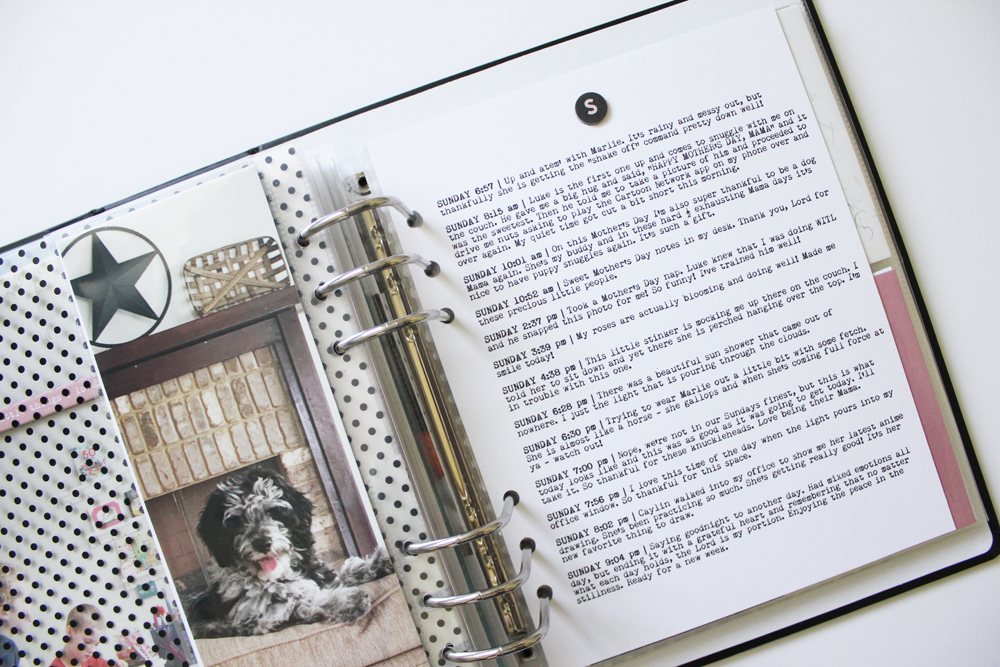 S
SUNDAY 6:57 | Up and atem! with Marlie. It's rainy and messy out, but
thankfully she is getting the "shake off" command pretty down well!
SUNDAY 8:15 am | Luke is the first one up and comes to snuggle with me on
the couch. He gave me a big hug and said, "HAPPY MOTHER'S DAY, MAMA" and it
was the sweetest. Then he told me to take a picture of him and proceeded to
drive me nuts asking to play the Cartoon Network app on my phone over and
over again. My quiet time got cut a bit short this morning.
SUNDAY 10:01 am | On this Mother's Day I'm also super thankful to be a dog
Mama again. She's my buddy and in these hard & exhausting Mama days it's
nice to have puppy snuggles again. It's such a gift.
SUNDAY 10:52 am | Sweet Mother's Day notes in my desk. Thank you, Lord for
these precious little people.
SUNDAY 2:37 pm | Took a Mother's Day nap. Luke knew that I was doing WITL
and he snapped this photo for me! So funny! I've trained him well!
SUNDAY 3:39 pm | My roses are actually blooming and doing well! Made me
smile today!
SUNDAY 4:38 pm | This little stinker is mocking me up there on the couch. I
told her to sit down and yet there she is perched hanging over the top. I'm
in trouble with this one.
SUNDAY 6:28 pm | There was a beautiful sun shower that came out of
nowhere. I just the light that is pouring through the clouds.
SUNDAY 6:30 pm | Trying to wear Marlie out a little bit with some fetch.
She is almost like a horse - she gallops and when she's coming full force at
ya - watch out!
SUNDAY 7:00 pm | Nope, we're not in our Sundays finest, but this is what
today looks like and this was as good as it was going to get today. I'll
take it. So thankful for these knuckleheads. Love being their Mama.
SUNDAY 7:56 pm | I love this time of the day when the light pours into my
office window. So thankful for this space.
SUNDAY 8:02 pm | Caylin walked into my office to show me her latest anime
drawing. She's been practicing so much. She's getting really good! It's her
new favorite thing to draw.
SUNDAY 9:04 pm | Saying goodnight to another day. Had mixed emotions all
day, but ending it with a grateful heart and remembering that no matter
what each day holds, the Lord is my portion. Enjoying the peace in the
stillness. Ready for a new week.